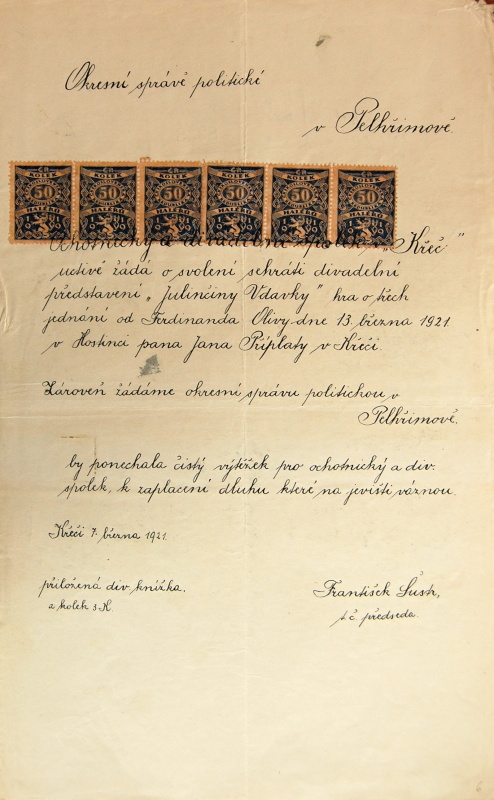 Okresní správě politické
v Pelhřimově.
ČR ČR ČR ČR ČR ČR
KOLEK KOLEK KOLEK KOLEK KOLEK KOLEK
50 50 50 50 50 50
HALÉŘŮ HALÉŘŮ HALÉŘŮ HALÉŘŮ HALÉŘŮ HALÉŘŮ
Ochotnický a divadelní spolek, „Křeč"
uctivě žádá o svolení sehráti divadelní
představení „Julinčiny Vdavky" hra o třech
jednání od Ferdinanda Olivy dne 13. března 1921.
v Hostinci pana Jana Příplaty v Křeči.
Zároveň žádáme okresní správu politickou v
Pelhřimově.
by ponechala čistý výtěžek pro ochotnický a div.
spolek, k zaplacení dluhu které na jevišti váznou.
Křeči 7. března 1921.
přiložená div. knížka.
a kolek 3 K.
František Šustr,
t. č. předseda.